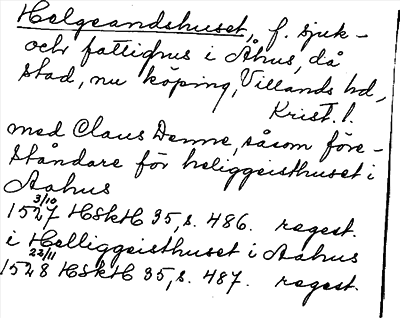 Helgeandshuset, f. sjuk-
och fattighus i Åhus, då
stad, nu köping, Villands hd,
Krist. l.
med Claus Denne, såsom före-
ståndare för heliggeisthuset i
Aahus
1527 3/10 HSkH 35, s. 486. regest.
i Helliggeisthuset i Aahus
1528 22/11 HSkH 35, s. 487. regest.